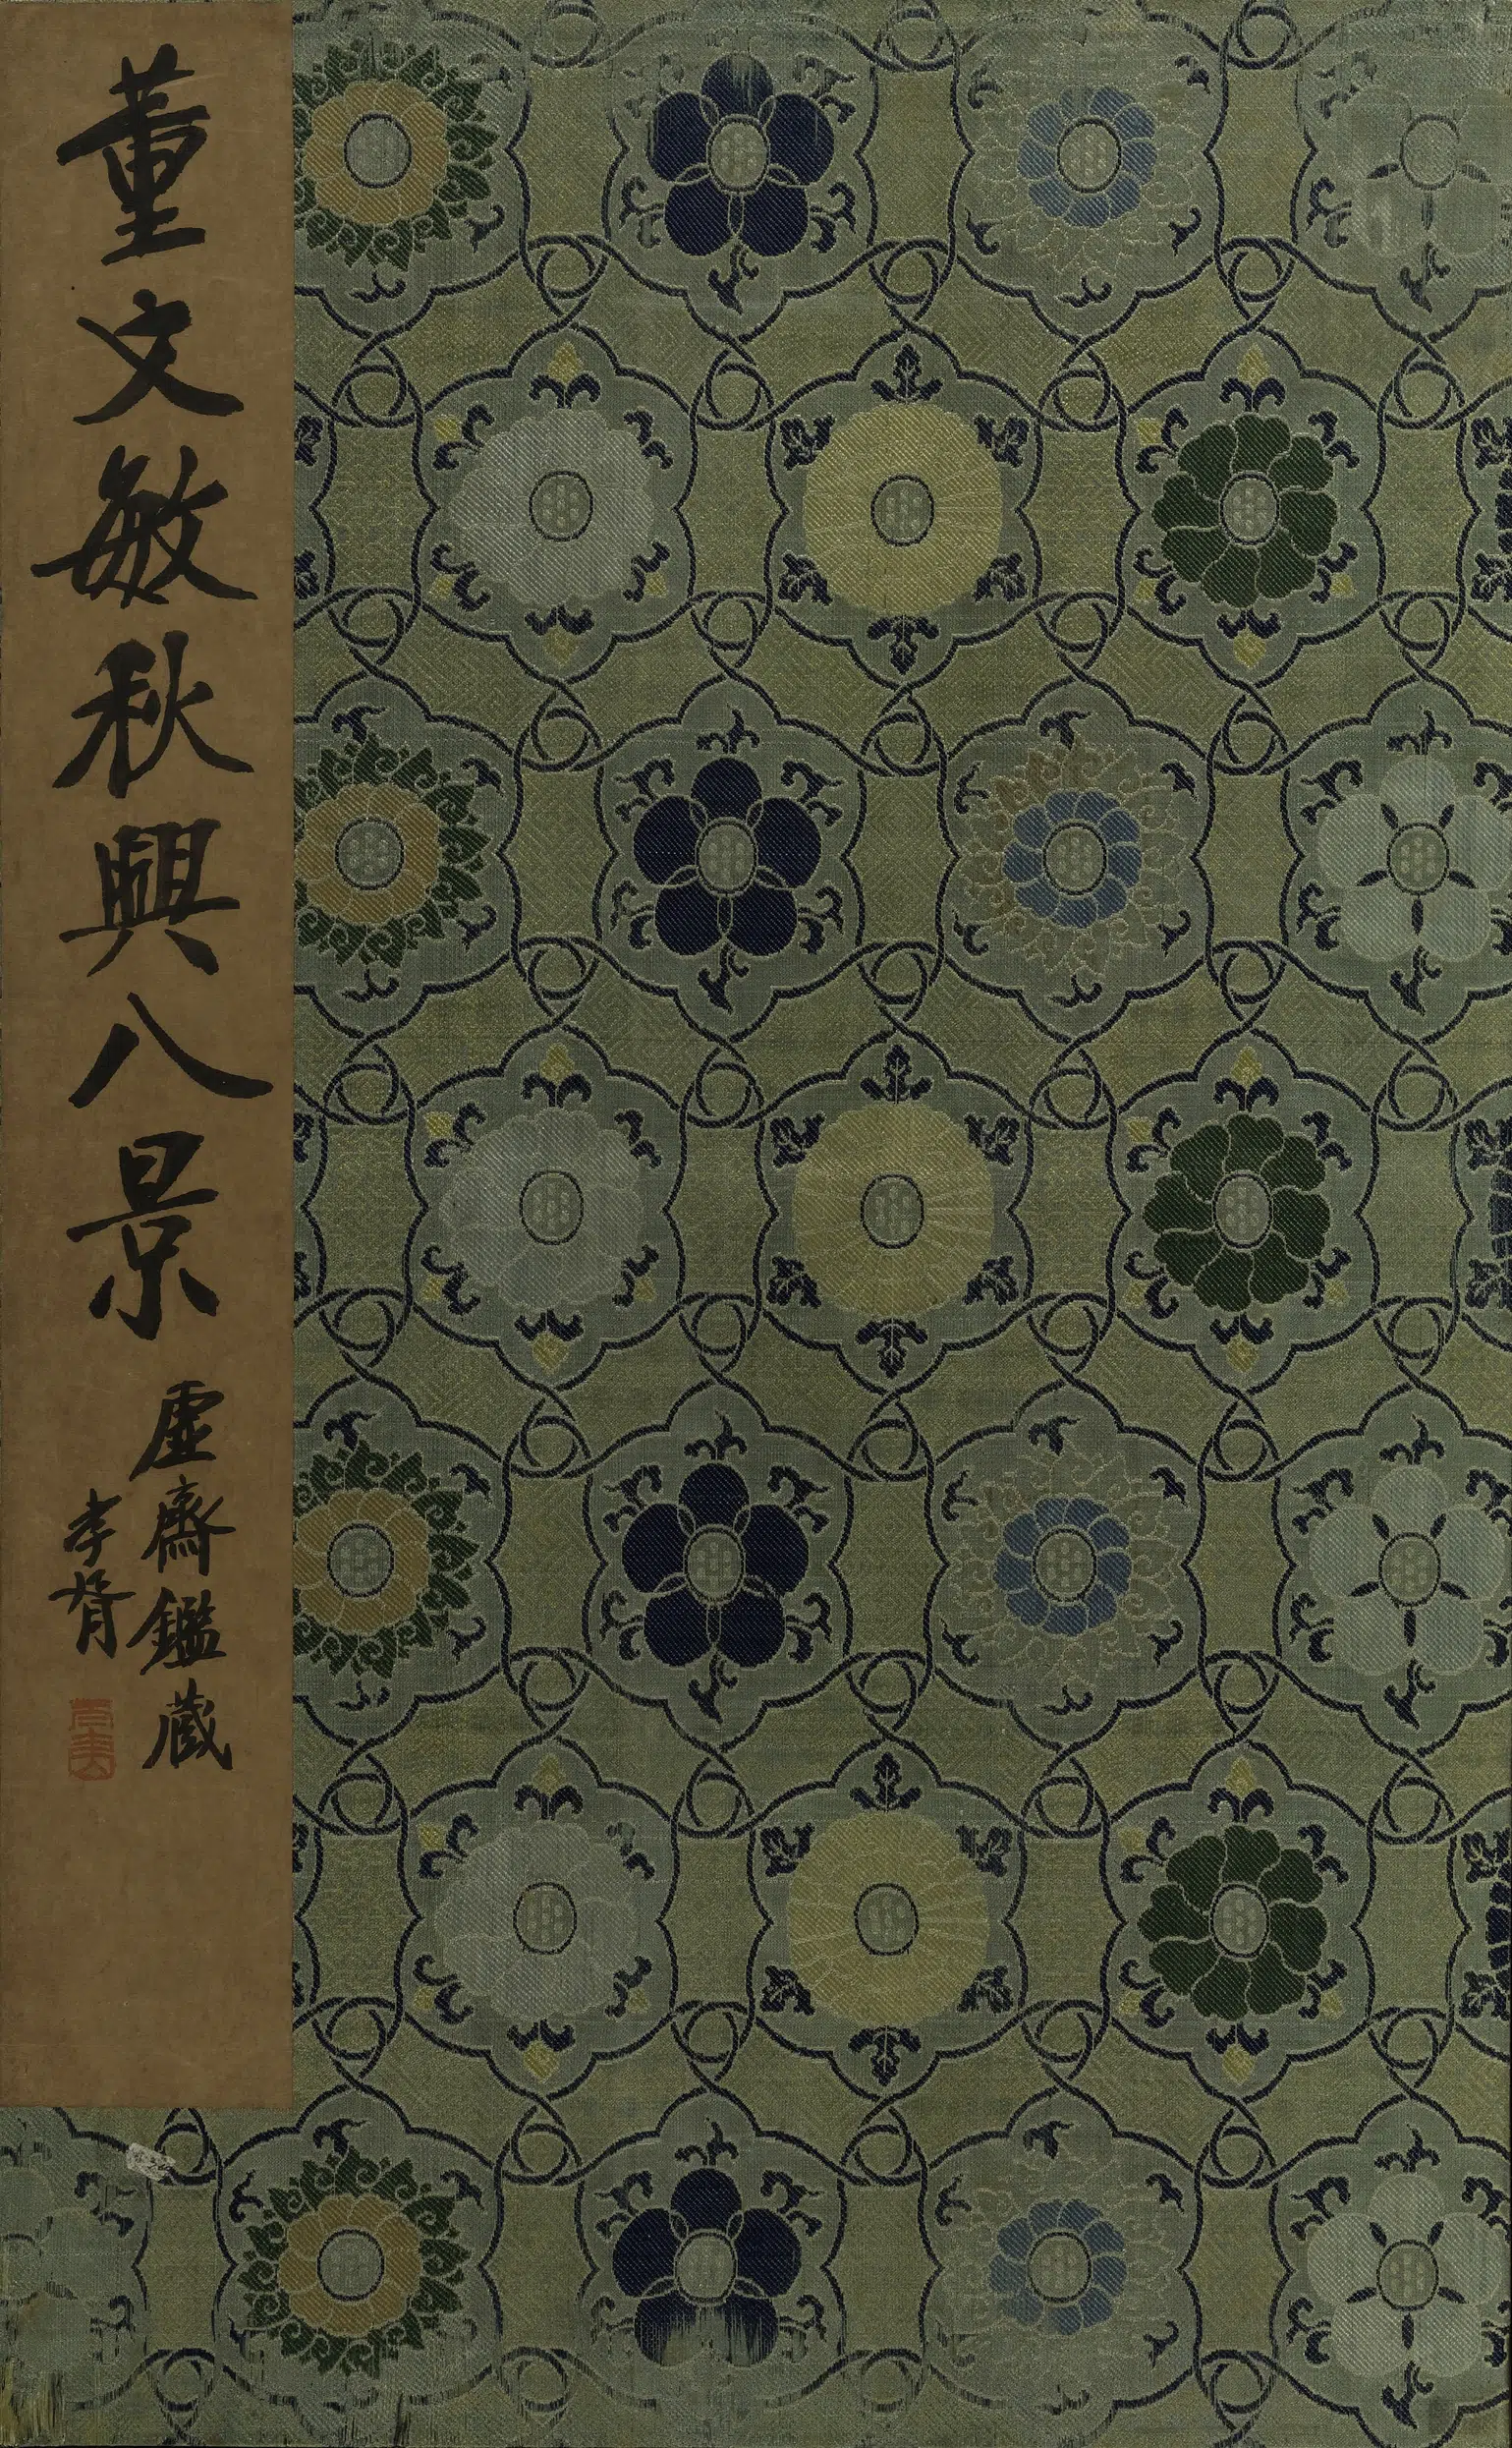 董文敏秋興八景
虛齋鑑藏
孝胥